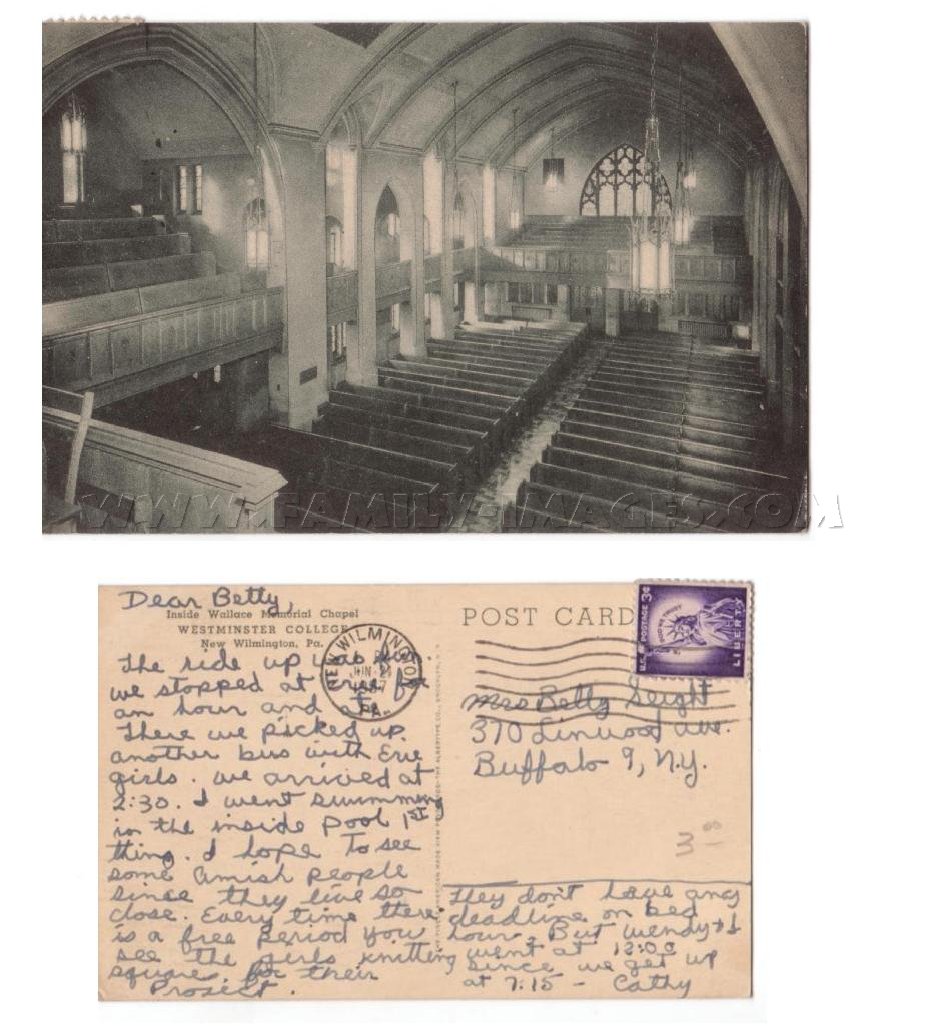 WWW.FAMILY-IMAGES.COM
Dear Betty,
Inside Wallace Memorial Chapel
WESTMINSTER COLLEGE
New Wilmington, Pa.
The ride up was fun
we stopped at Erie for
an hour and ate.
There we picked up
another bus with Erie
girls. We arrived at
2:30. I went swimming
in the inside pool 1st
thing. I hope to see
some Amish people
since they live so
close. Every time there
is a free period you
see the girls knitting
square. for their
Project.
POST CARD
U.S. POSTAGE 3¢
IN GOD WE TRUST
LIBERTY
NEW WILMINGTON
JUN 21
PA.
Mrs Betty Seight
370 Linwood Ave.
Buffalo 9, N.Y.
3.00
They don't have any
deadline on bed
hour. But Wendy & I
went at 12:00
since we get up
at 7:15 - Cathy